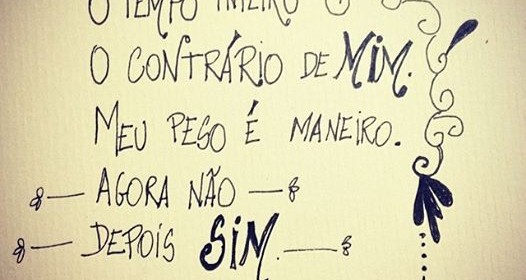 O TEMPO INTEIRO
O CONTRÁRIO DE MIM.
MEU PESO É MANEIRO.
AGORA NÃO
DEPOIS SIM.